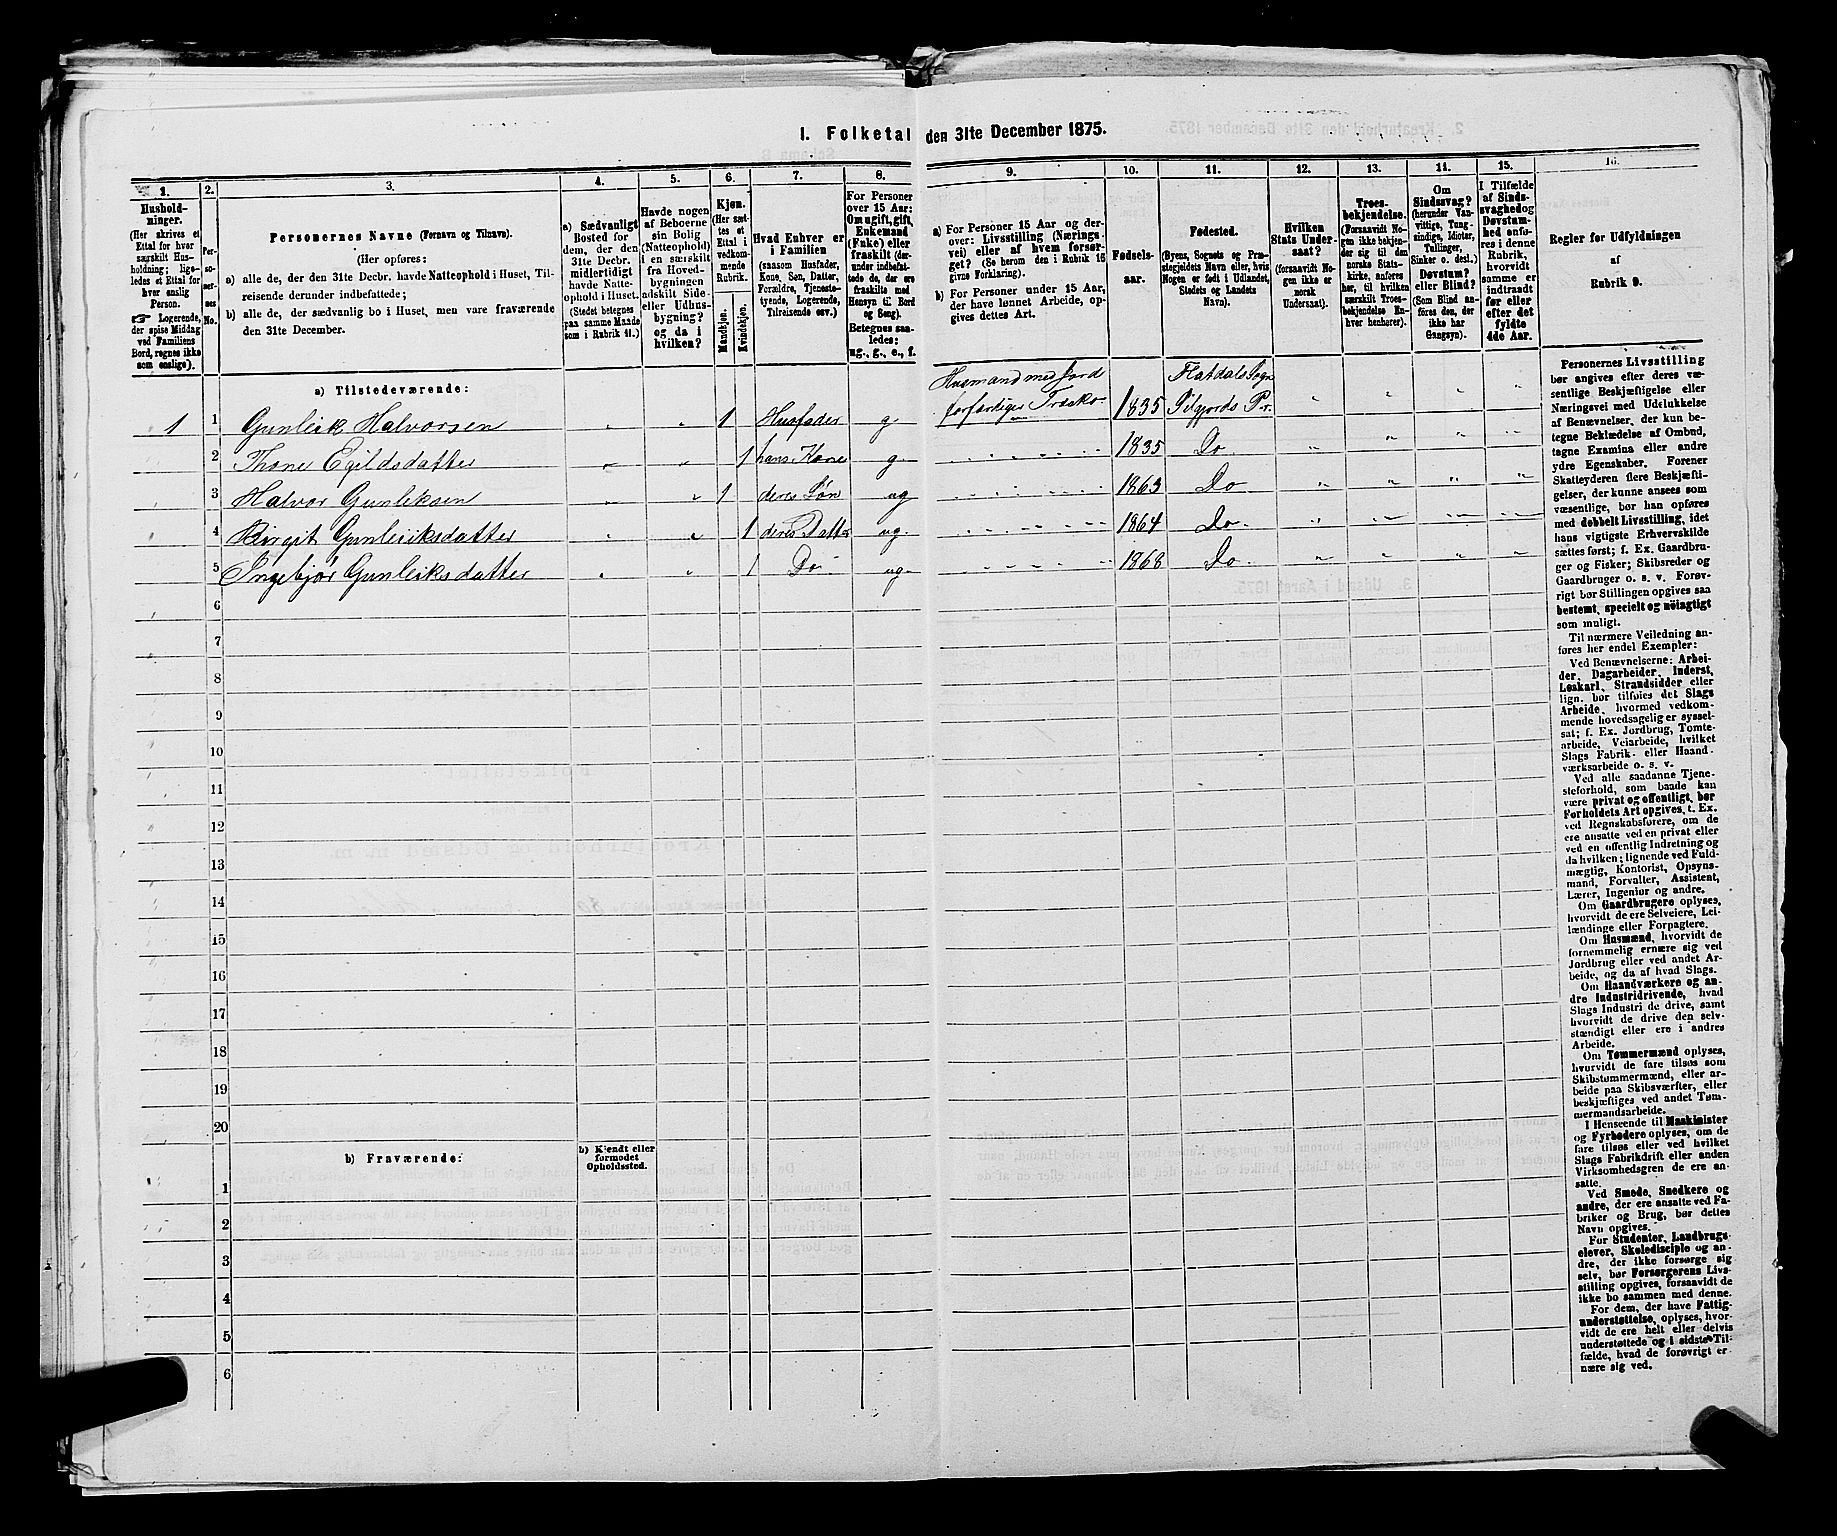 I. Folketal den 31te December 1875.
1. 2. 3. 4. 5. 6. 7. 8. 9. 10. 11. 12. 13. 14. 15. 16.
Hushold-
ninger.
(Her skrives et
Ettal for hver
særskilt Hus-
holdning; lige-
ledes et Ettal for
hver enslig
Person.
☞ Logerende,
der spise Middag
ved Familiens
Bord, regnes ikke
som enslige).
Per-
so-
ner-
nes
No.
Personernes Navne (Fornavn og Tilnavn).
(Her opføres:
a) alle de, der den 31te Decbr. havde Natteophold i Huset, Til-
reisende derunder indbefattede;
b) alle de, der sædvanlig bo i Huset, men vare fraværende
den 31te December.
a) Sædvanligt
Bosted for
dem, der den
31te Decbr.
midlertidigt
havde Natte-
ophold i Huset.
(Stedet betegnes
paa samme Maade
som i Rubrik 11.)
Havde nogen
af Beboerne
sin Bolig
(Natteophold)
i en særskilt
fra Hoved-
bygningen
adskilt Side-
eller Udhus-
bygning?
og da i
hvilken?
Kjøn.
(Her sæt-
tes et
Ettal i
vedkom-
mende
Rubrik.
Mandkjøn.
Kvindekjøn.
Hvad Enhver er
i Familien
(saasom Husfader,
Kone, Søn, Datter,
Forældre, Tjeneste-
tyende, Logerende,
Tilreisende osv.)
For Personer
over 15 Aar:
Om ugift, gift,
Enkemand
(Enke) eller
fraskilt (der-
under indbefat-
tede de, der ere
fraskilte med
Hensyn til Bord
og Seng).
Betegnes saa-
ledes:
ug., g., e., f.
a) For Personer 15 Aar og der-
over: Livsstilling (Nærings-
vei) eller af hvem forsør-
get? (Se herom den i Rubrik 16
givne Forklaring).
b) For Personer under 15 Aar,
der have lønnet Arbeide, op-
gives dettes Art.
Fødsels-
aar.
Fødested.
(Byens, Sognets og Præ-
stegjeldets Navn eller, hvis
Nogen er født i Udlandet,
Stedets og Landets
Navn).
Hvilken
Stats Under-
saat?
(forsaavidt No-
gen ikke er
norsk
Undersaat).
Troes-
bekjendelse.
(Forsaavidt No-
gen ikke bekjen-
der sig til den
norske Stats-
kirke, anføres
her, til hvilken
særskilt Troes-
bekjendelse En-
hver henhører).
Om
Sindssvag?
(herunder Van-
vittige, Tung-
sindige, Idioter,
Tullinger,
Sinker o. desl.)
Døvstum?
eller Blind?
(Som Blind an-
føres den, der
ikke har
Gangsyn).
I Tilfælde
af Sinds-
svaghed og
Døvstum-
hed anfø-
res i denne
Rubrik,
hvorvidt
samme er
indtraadt
før eller
efter det
fyldte
4de Aar.
Regler for Udfyldningen
af
Rubrik 9.
a) Tilstedeværende:
1 1 Gunleik Halvorsen " " 1 Husfader g Husmand med Jord forfærdiger Træsko 1835 Flatdals Sogn Siljords Pr. " " " "
2 Thone Egildsdatter " " 1 hans Kone g 1835 Do " " " "
3 Halvor Gunleksen " " 1 deres Søn ug 1863 Do " " " "
4 Birgit Gunleiksdatter " " 1 deres Datter ug 1864 Do " " " "
5 Ingebjør Gunleiksdatter " " 1 Do ug 1868 Do " " " "
6
7
8
9
10
11
12
13
14
15
16
17
18
19
20
b) Fraværende:
b) Kjendt eller
formodet
Opholdssted.
1
2
3
4
5
6
Personernes Livsstilling
bør angives efter deres væ-
sentlige Beskjæftigelse eller
Næringsvei med Udelukkelse
af Benævnelser, der kun be-
tegne Beklædelse af Ombud,
tagne Examina eller andre
ydre Egenskaber. Forener
Skatteyderen flere Beskjæfti-
gelser, der kunne ansees som
væsentlige, bør han opføres
med dobbelt Livsstilling, idet
hans vigtigste Erhvervskilde
sættes først; f. Ex. Gaardbru-
ger og Fisker; Skibsreder og
Gaardbruger o. s. v. Forøv-
rigt bør Stillingen opgives saa
bestemt, specielt og nøiagtigt
som muligt.
Til nærmere Veiledning an-
føres her endel Exempler:
Ved Benævnelserne: Arbei-
der, Dagarbeider, Inderst,
Løskarl, Strandsidder eller
lign. bør tilføies det Slags
Arbeide, hvormed vedkom-
mende hovedsagelig er syssel-
sat; f. Ex. Jordbrug, Tomte-
arbeide, Veiarbeide, hvilket
Slags Fabrik- eller Haand-
værksarbeide o. s. v.
Ved alle saadanne Tjene-
steforhold, som baade kan
være privat og offentligt, bør
Forholdets Art opgives, t. Ex.
ved Regnskabsførere, om de
ere ansatte ved en privat eller
ved en offentlig Indretning og
da hvilken; lignende ved Fuld-
mægtig, Kontorist, Opsyns-
mand, Forvalter, Assistent,
Lærer, Ingeniør og andre.
Om Gaardbrugere oplyses,
hvorvidt de ere Selveiere, Lei-
lændinge eller Forpagtere.
Om Husmænd, hvorvidt de
fornemmelig ernære sig ved
Jordbrug eller ved andet Ar-
beide, og da af hvad Slags.
Om Haandværkere og an-
dre Industridrivende, hvad
Slags Industri de drive, samt
hvorvidt de drive den selv-
stændigt eller ere i andres
Arbeide.
Om Tømmermænd oplyses,
hvorvidt de fare tilsøs som
Skibstømmermænd, eller ar-
beide paa Skibsværfter, eller
beskjæftiges ved andet Tøm-
mermandsarbeide.
I Henseende til Maskinister
og Fyrbødere oplyses, om de
fare tilsøs eller ved hvilket
Slags Fabrikdrift eller anden
Virksomhedsgren de ere an-
satte.
Ved Smede, Snedkere og
andre, der ere ansatte ved Fa-
briker og Brug, bør dettes
Navn opgives.
For Studenter, Landbrugs-
elever, Skoledisciple og an-
dre, der ikke forsørge sig
selv, bør Forsørgerens Livs-
stilling opgives, forsaavidt de
ikke bo sammen med denne.
For dem, der have Fattig-
understøttelse, oplyses, hvor-
vidt de ere helt eller delvis
understøttede og i sidste Til-
fælde, hvad de forøvrigt er-
nære sig ved.